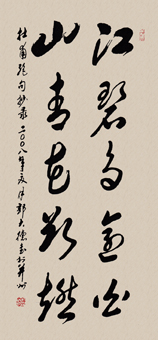 江碧鸟逾白
山青花欲燃
杜甫绝句抄录二〇〇八年夏